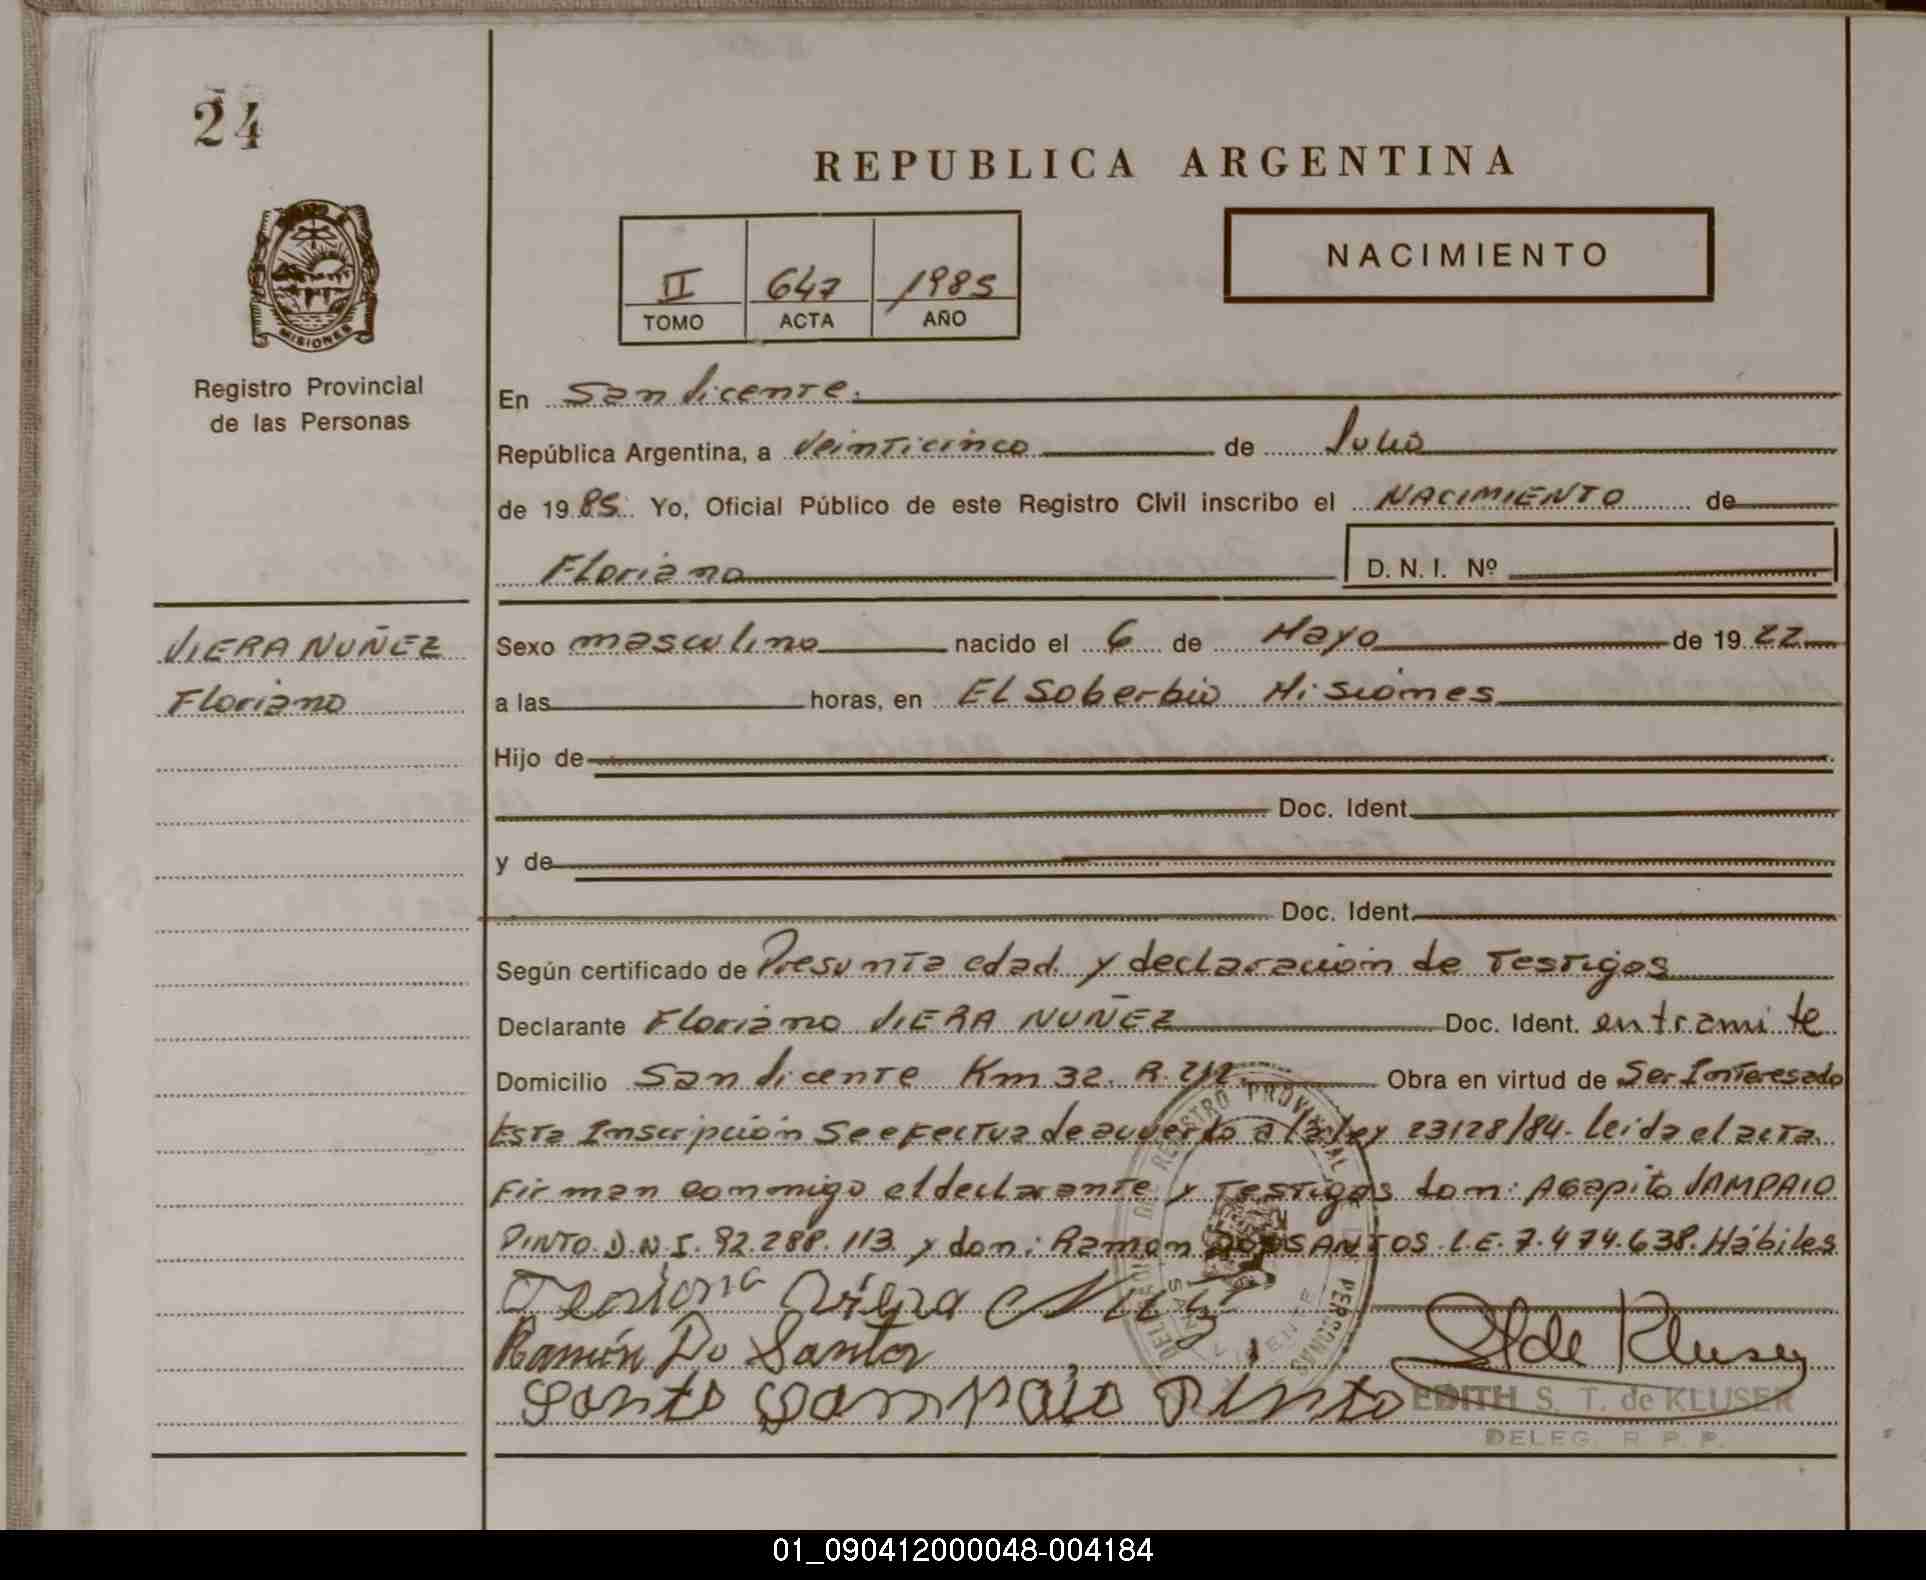 24
REPUBLICA ARGENTINA
NACIMIENTO
II 647 1985
TOMO ACTA AÑO
MISIONES
Registro Provincial
de las Personas
En San Vicente.
República Argentina, a Veinticinco de Julio
de 1985 Yo, Oficial Público de este Registro Civil inscribo el NACIMIENTO de
Floriano D. N. I. Nº
VIERA NUÑEZ
Floriano
Sexo masculino nacido el 6 de Mayo de 1922
a las horas, en El Soberbio Misiones
Hijo de
Doc. Ident.
y de
Doc. Ident.
Según certificado de Presunta edad y declaración de Testigos
Declarante Floriano VIERA NUÑEZ Doc. Ident. en tramite
Domicilio San Vicente Km 32. R. 212. Obra en virtud de Ser Interesado
Esta Inscripción Se efectua de acuerdo a la ley 23128/84. leida el acta
firman conmigo el declarante y Testigos don: Agapito SAMPAIO
PINTO D.N.I. 92.288.113 y don: Ramon DOS SANTOS L.E. 7.474.638. Hábiles
Ramón Do Santos
Santo Sampaio Pinto
de Kluser
EDITH S. T. de KLUSER
DELEG. R. P. P.
REGISTRO PROVINCIAL
PERSONAS
SAN VICENTE
01_090412000048-004184